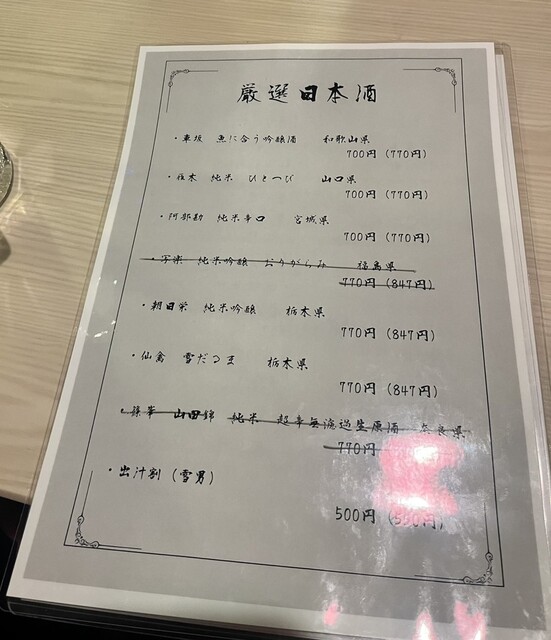 厳選日本酒
・車坂 魚に合う吟醸酒 和歌山県
700円(770円)
・雁木 純米 ひとつび 山口県
700円(770円)
・阿部勘 純米辛口 宮城県
700円(770円)
・写楽 純米吟醸 おりがらみ 福島県
770円(847円)
・朝日栄 純米吟醸 栃木県
770円(847円)
・仙禽 雪だるま 栃木県
770円(847円)
・篠峯 山田錦 純米 超辛無濾過生原酒 奈良県
770円
・出汁割(雪男)
500円(550円)